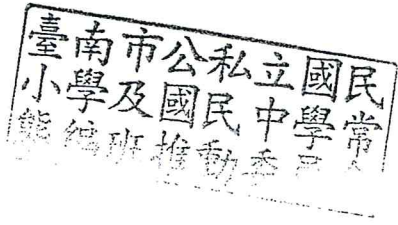 臺南市公私立國民
小學及國民中學常
態編班推動委